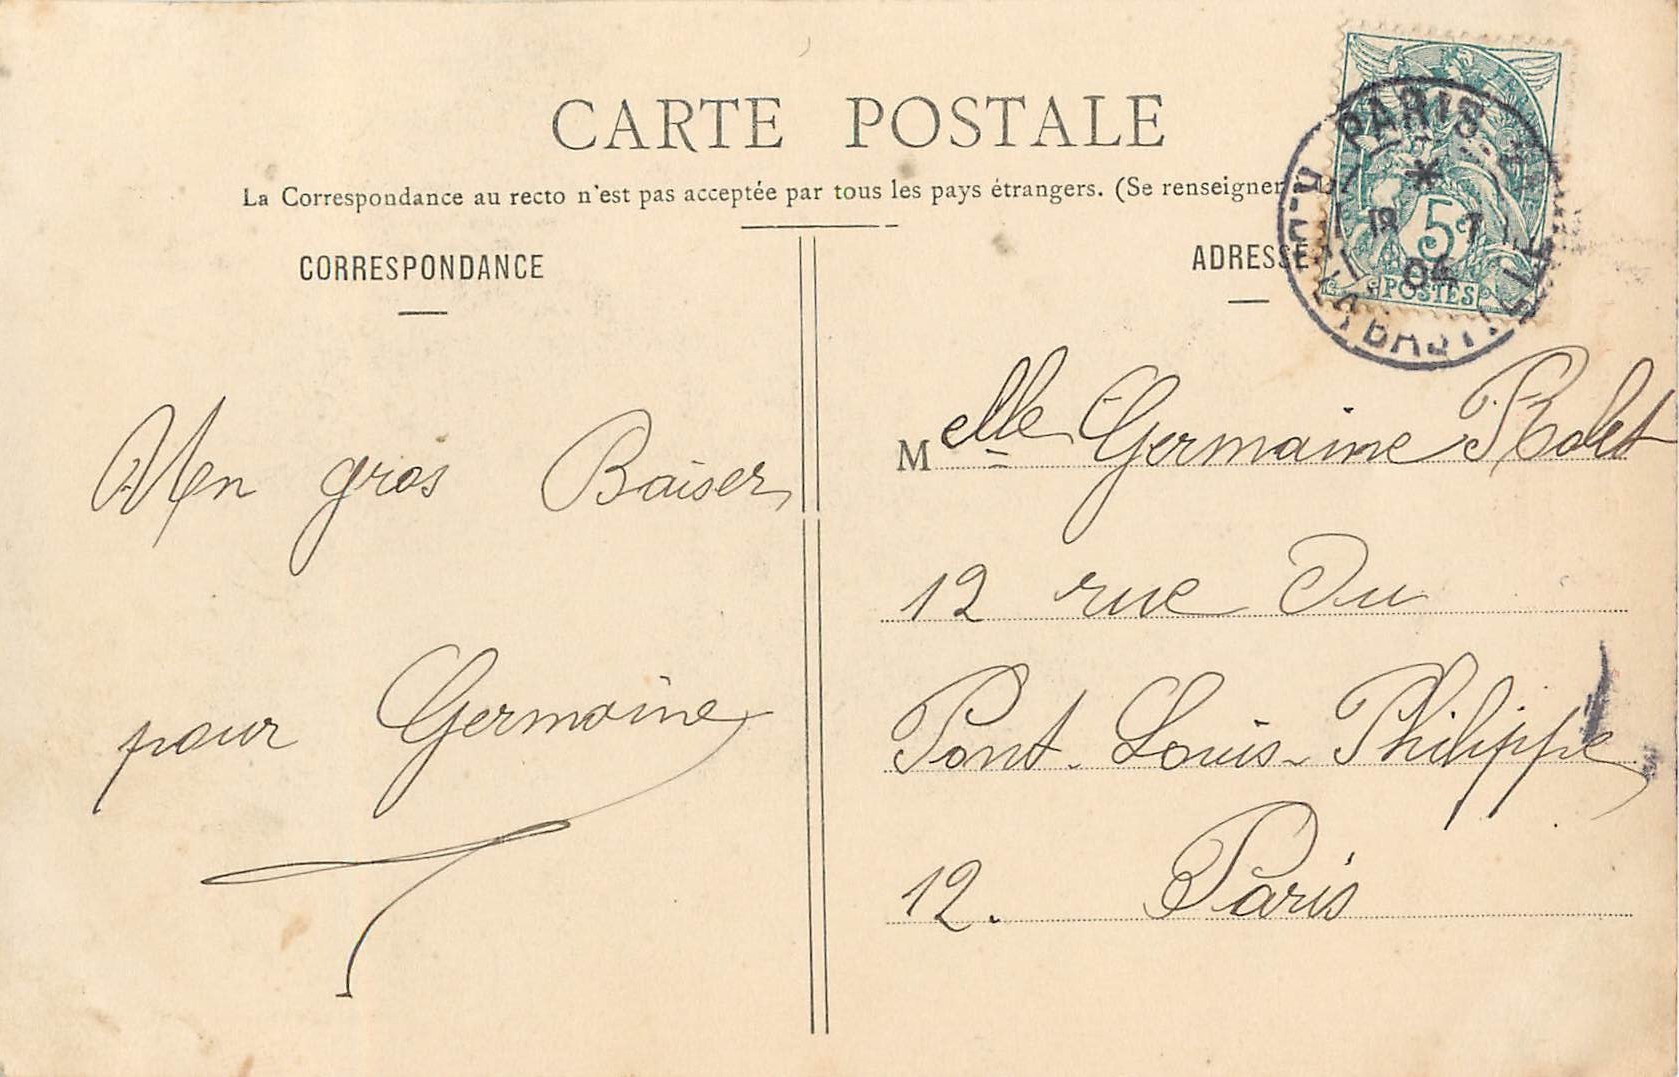 CARTE POSTALE
La Correspondance au recto n'est pas acceptée par tous les pays étrangers. (Se renseigner
CORRESPONDANCE
ADRESSE
PARIS
18 7
04
5c
POSTES
Un gros Baiser
pour Germaine
Melle Germaine Rolet
12 rue Du
Pont-Louis-Philippe
12. Paris